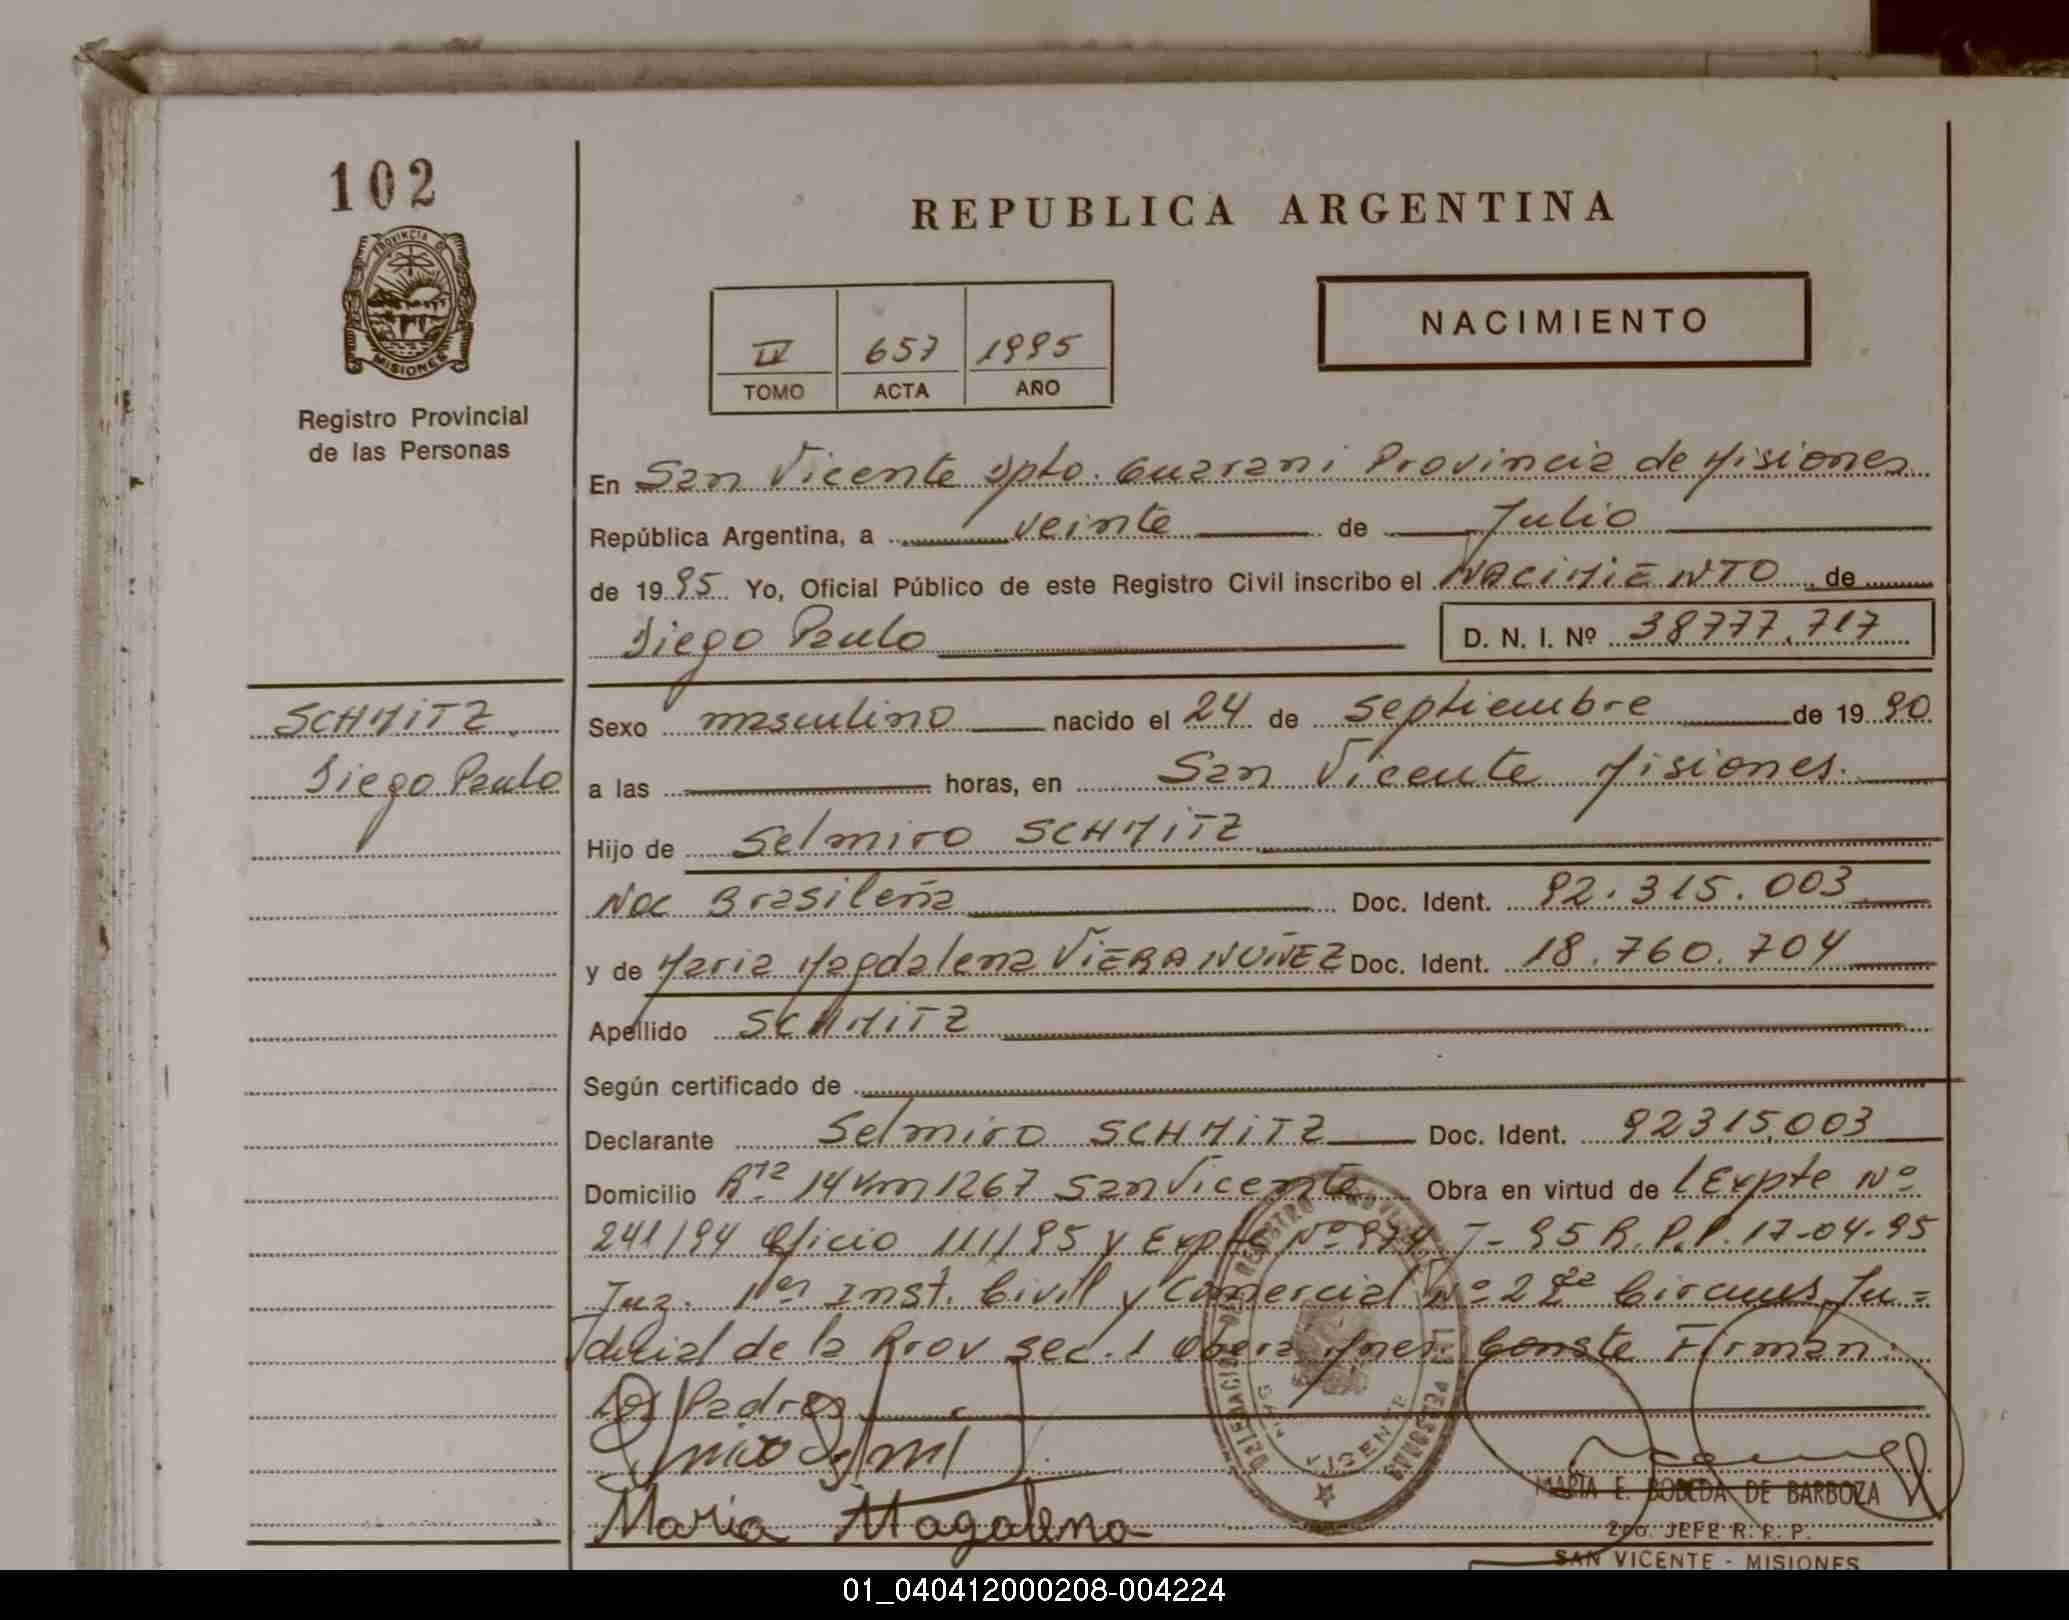 102
PROVINCIA DE
MISIONES
Registro Provincial
de las Personas
REPUBLICA ARGENTINA
NACIMIENTO
IV 657 1995
TOMO ACTA AÑO
En San Vicente Dpto. Guarani Provincia de Misiones
República Argentina, a veinte de Julio
de 1995 Yo, Oficial Público de este Registro Civil inscribo el NACIMIENTO de
Diego Paulo D. N. I. Nº 38777.717
SCHMITZ
Diego Paulo
Sexo masculino nacido el 24 de Septiembre de 1990
a las horas, en San Vicente Misiones.
Hijo de Selmiro SCHMITZ
Nac Brasileña Doc. Ident. 92.315.003
y de Maria Magdalena VIERA NUÑEZ Doc. Ident. 18.760.704
Apellido SCHMITZ
Según certificado de
Declarante Selmiro SCHMITZ Doc. Ident. 92315.003
Domicilio Rta 14 Km 1267 San Vicente Obra en virtud de l Expte Nº
241/94 Oficio 111/95 y Expte Nº 95 R.P.P. 17-04-95
Juz. 1er Inst. Civil y Comercial Nº 2 2da Circuns Ju=
dicial de la Prov Sec. 1 Obera Mnes. Conste Firman
Los Padres
Maria Magalena
DELEGACION DEL REGISTRO PROVINCIAL DE LAS PERSONAS
SAN VICENTE
MARIA E. BOBEDA DE BARBOZA
2do. JEFE R. P. P.
SAN VICENTE - MISIONES
01_040412000208-004224